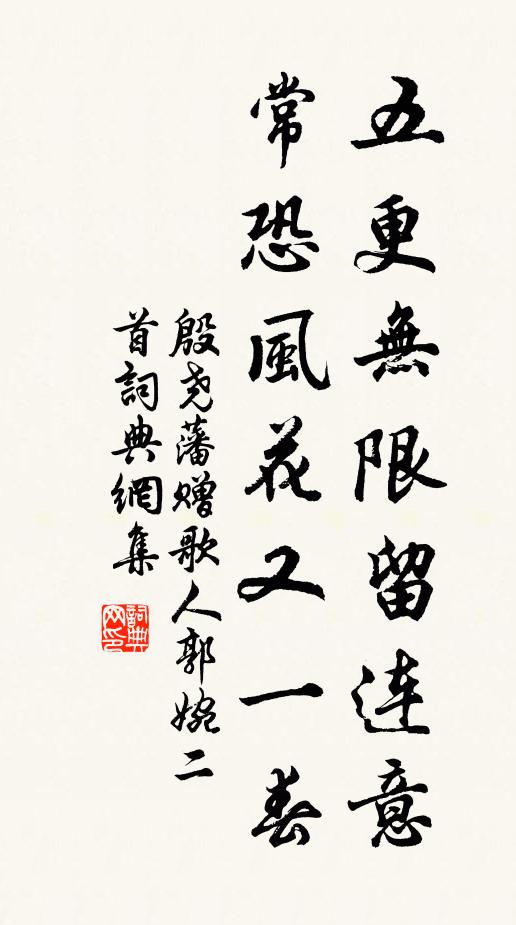 五更無限留連意
常恐風花又一春
殷尧藩赠歌人郭婉二
首詞典網集
詞典
网印